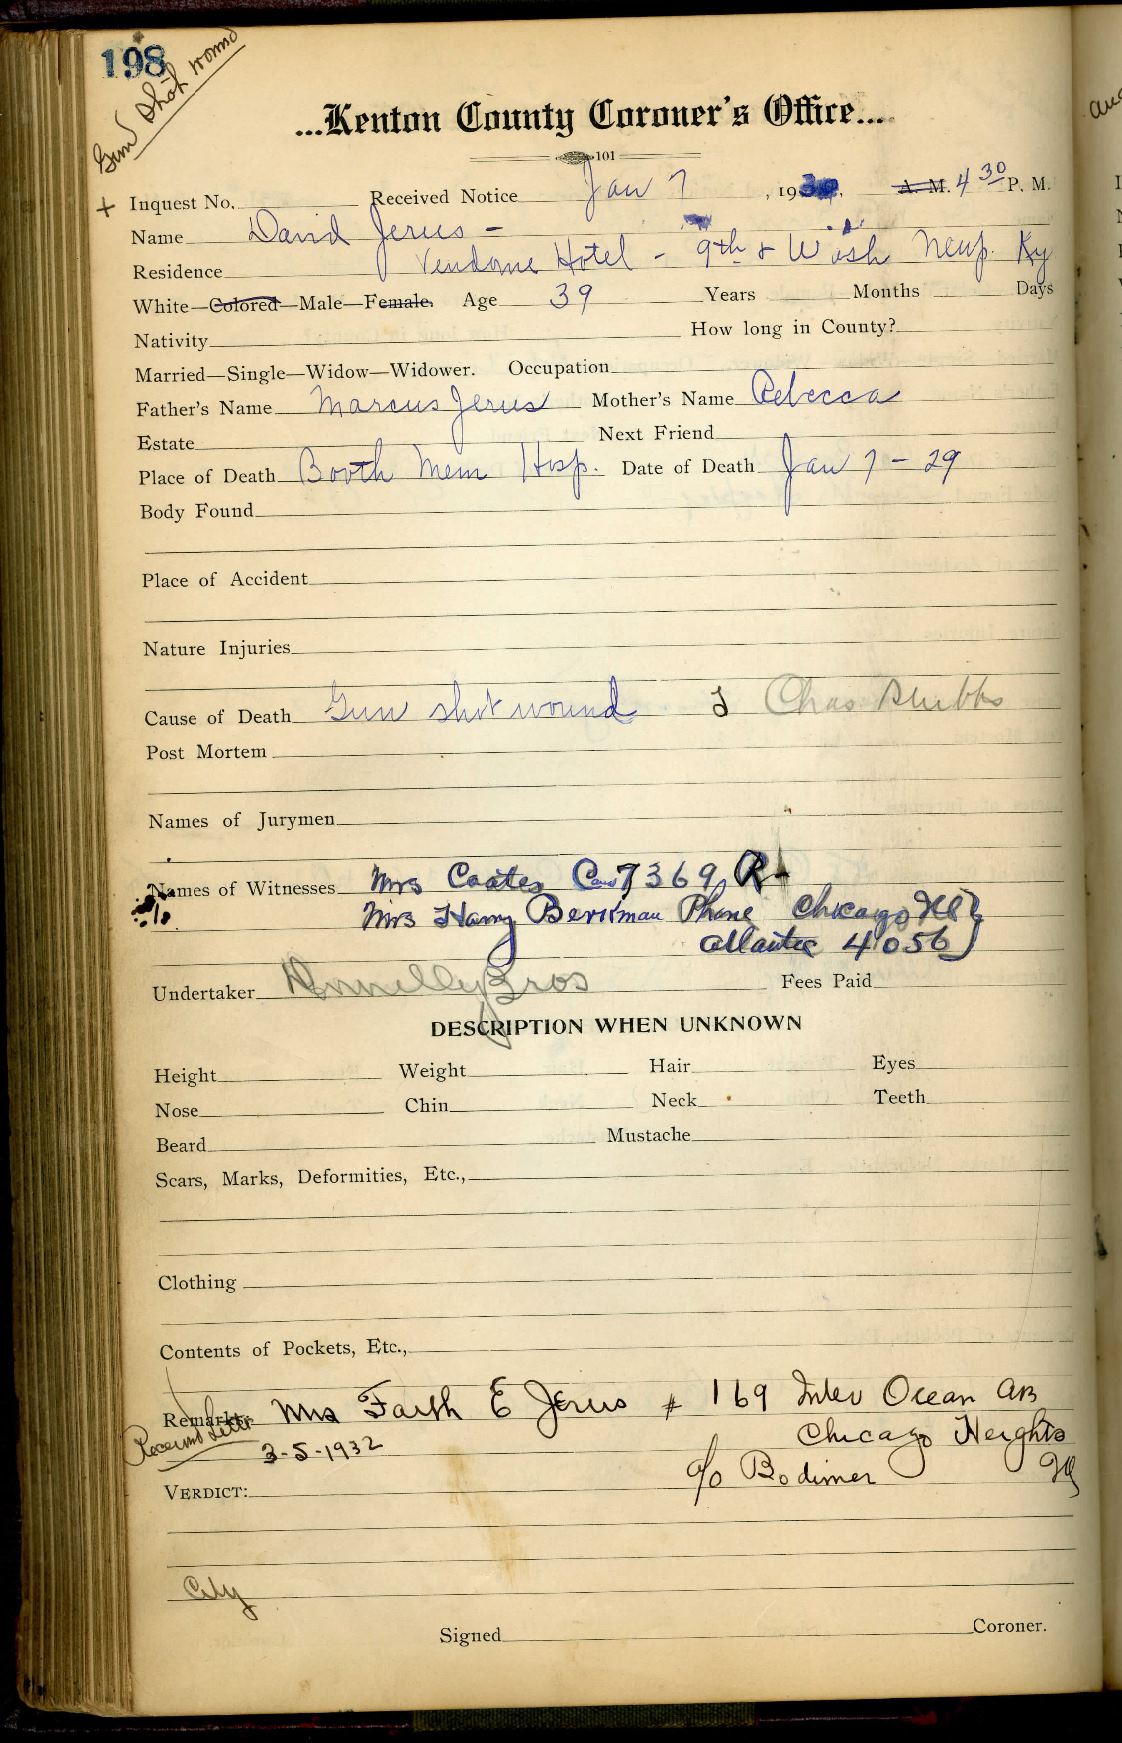 198
Gun Shot wound
...Kenton County Coroner's Office...
101
+ Inquest No. Received Notice Jan 7, 19 A. M. 4 30 P. M.
Name David Jerus -
Residence Vendome Hotel - 9th & Wash Newp. Ky
White—Colored—Male—Female. Age 39 Years Months Days
Nativity How long in County?
Married—Single—Widow—Widower. Occupation
Father's Name Marcus Jerus Mother's Name Rebecca
Estate Next Friend
Place of Death Booth Mem Hosp. Date of Death Jan 7 - 29
Body Found
Place of Accident
Nature Injuries
Cause of Death Gun shot wound Chas Stubbs
Post Mortem
Names of Jurymen
Names of Witnesses Mrs Coates 7369 R
Mrs Harry Berkman Phone Chicago Ill }
Atlantic 4056
Undertaker Donnelly Bros Fees Paid
DESCRIPTION WHEN UNKNOWN
Height Weight Hair Eyes
Nose Chin Neck Teeth
Beard Mustache
Scars, Marks, Deformities, Etc.,
Clothing
Contents of Pockets, Etc.,
Remarks Mrs Faith E Jerus # 169 Inter Ocean Av
Received Letter
3-5-1932
Chicago Heights
Ill
c/o Bodimer
VERDICT:
City
Signed Coroner.